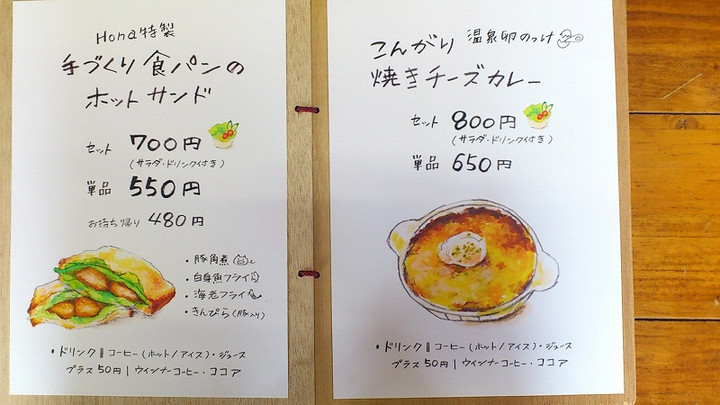 Hona特製
手づくり食パンの
ホットサンド
セット 700円
(サラダ・ドリンク付き)
単品 550円
お持ち帰り 480円
・豚角煮
・白身魚フライ
・海老フライ
・きんぴら(豚入り)
・ドリンク || コーヒー(ホット/アイス)・ジュース
プラス50円 | ウインナーコーヒー・ココア
こんがり 温泉卵のっけ
焼きチーズカレー
セット 800円
(サラダ・ドリンク付き)
単品 650円
・ドリンク || コーヒー(ホット/アイス)・ジュース
プラス50円 | ウインナーコーヒー・ココア